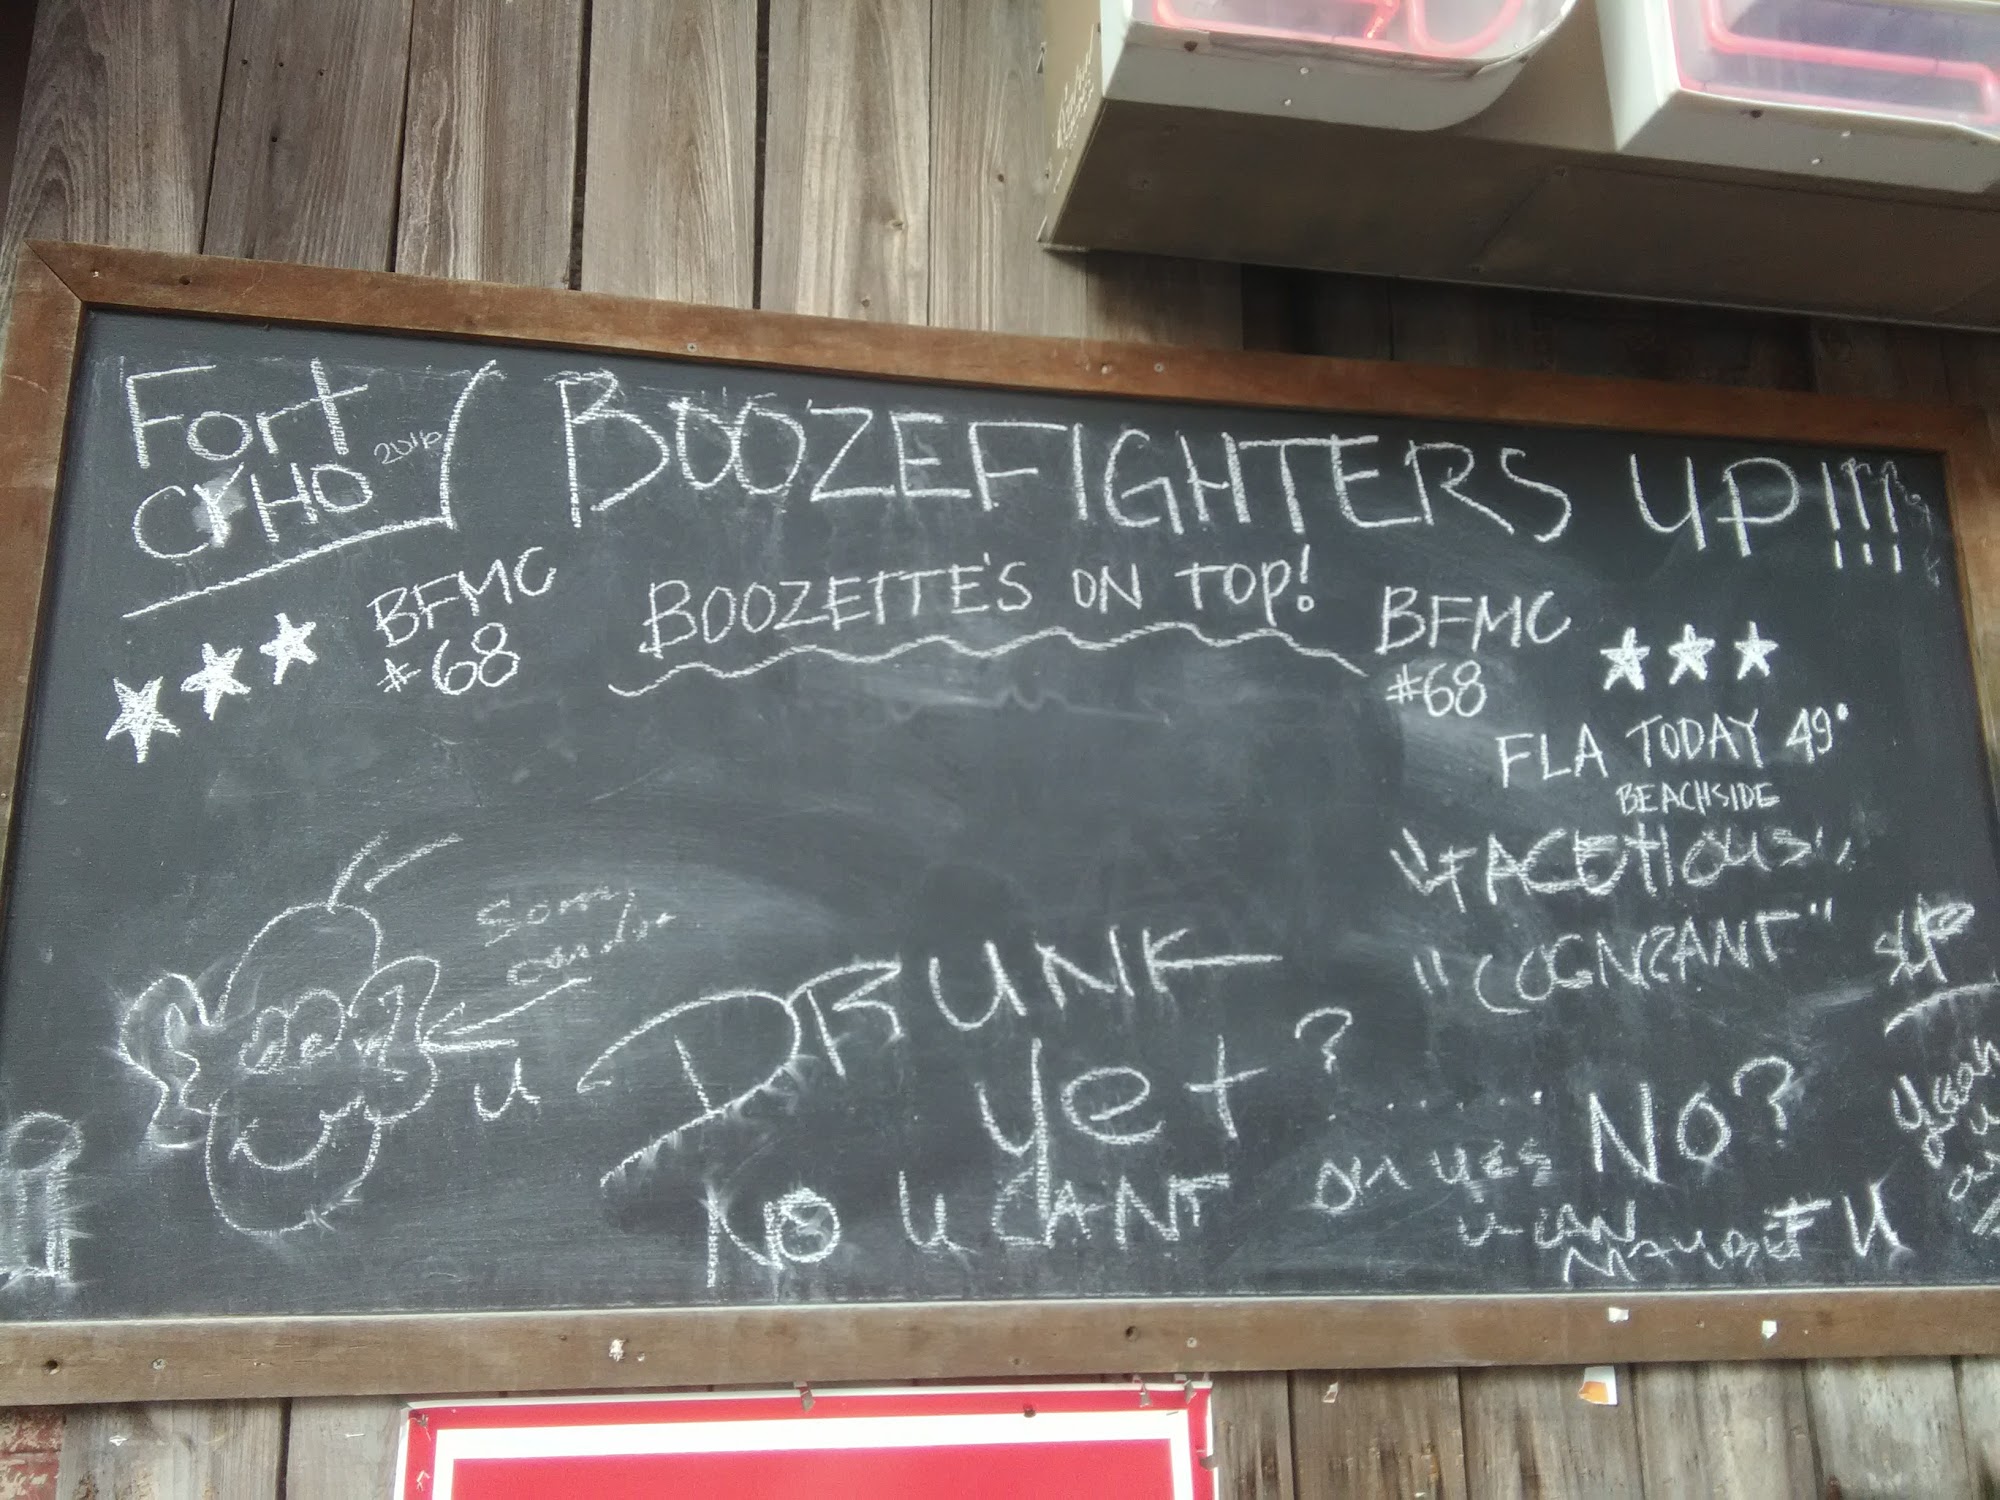 Fort
CYHO 2016
BOOZEFIGHTERS UP!!!
BOOZETTE'S ON TOP!
BFMC
#68
BFMC
#68
FLA TODAY 49°
BEACHSIDE
"FACETIOUS"
"COGNIZANT"
U
DRUNK
yet?
........ NO?
NO U CANT
OH YES
U CAN
U
Yeah
U